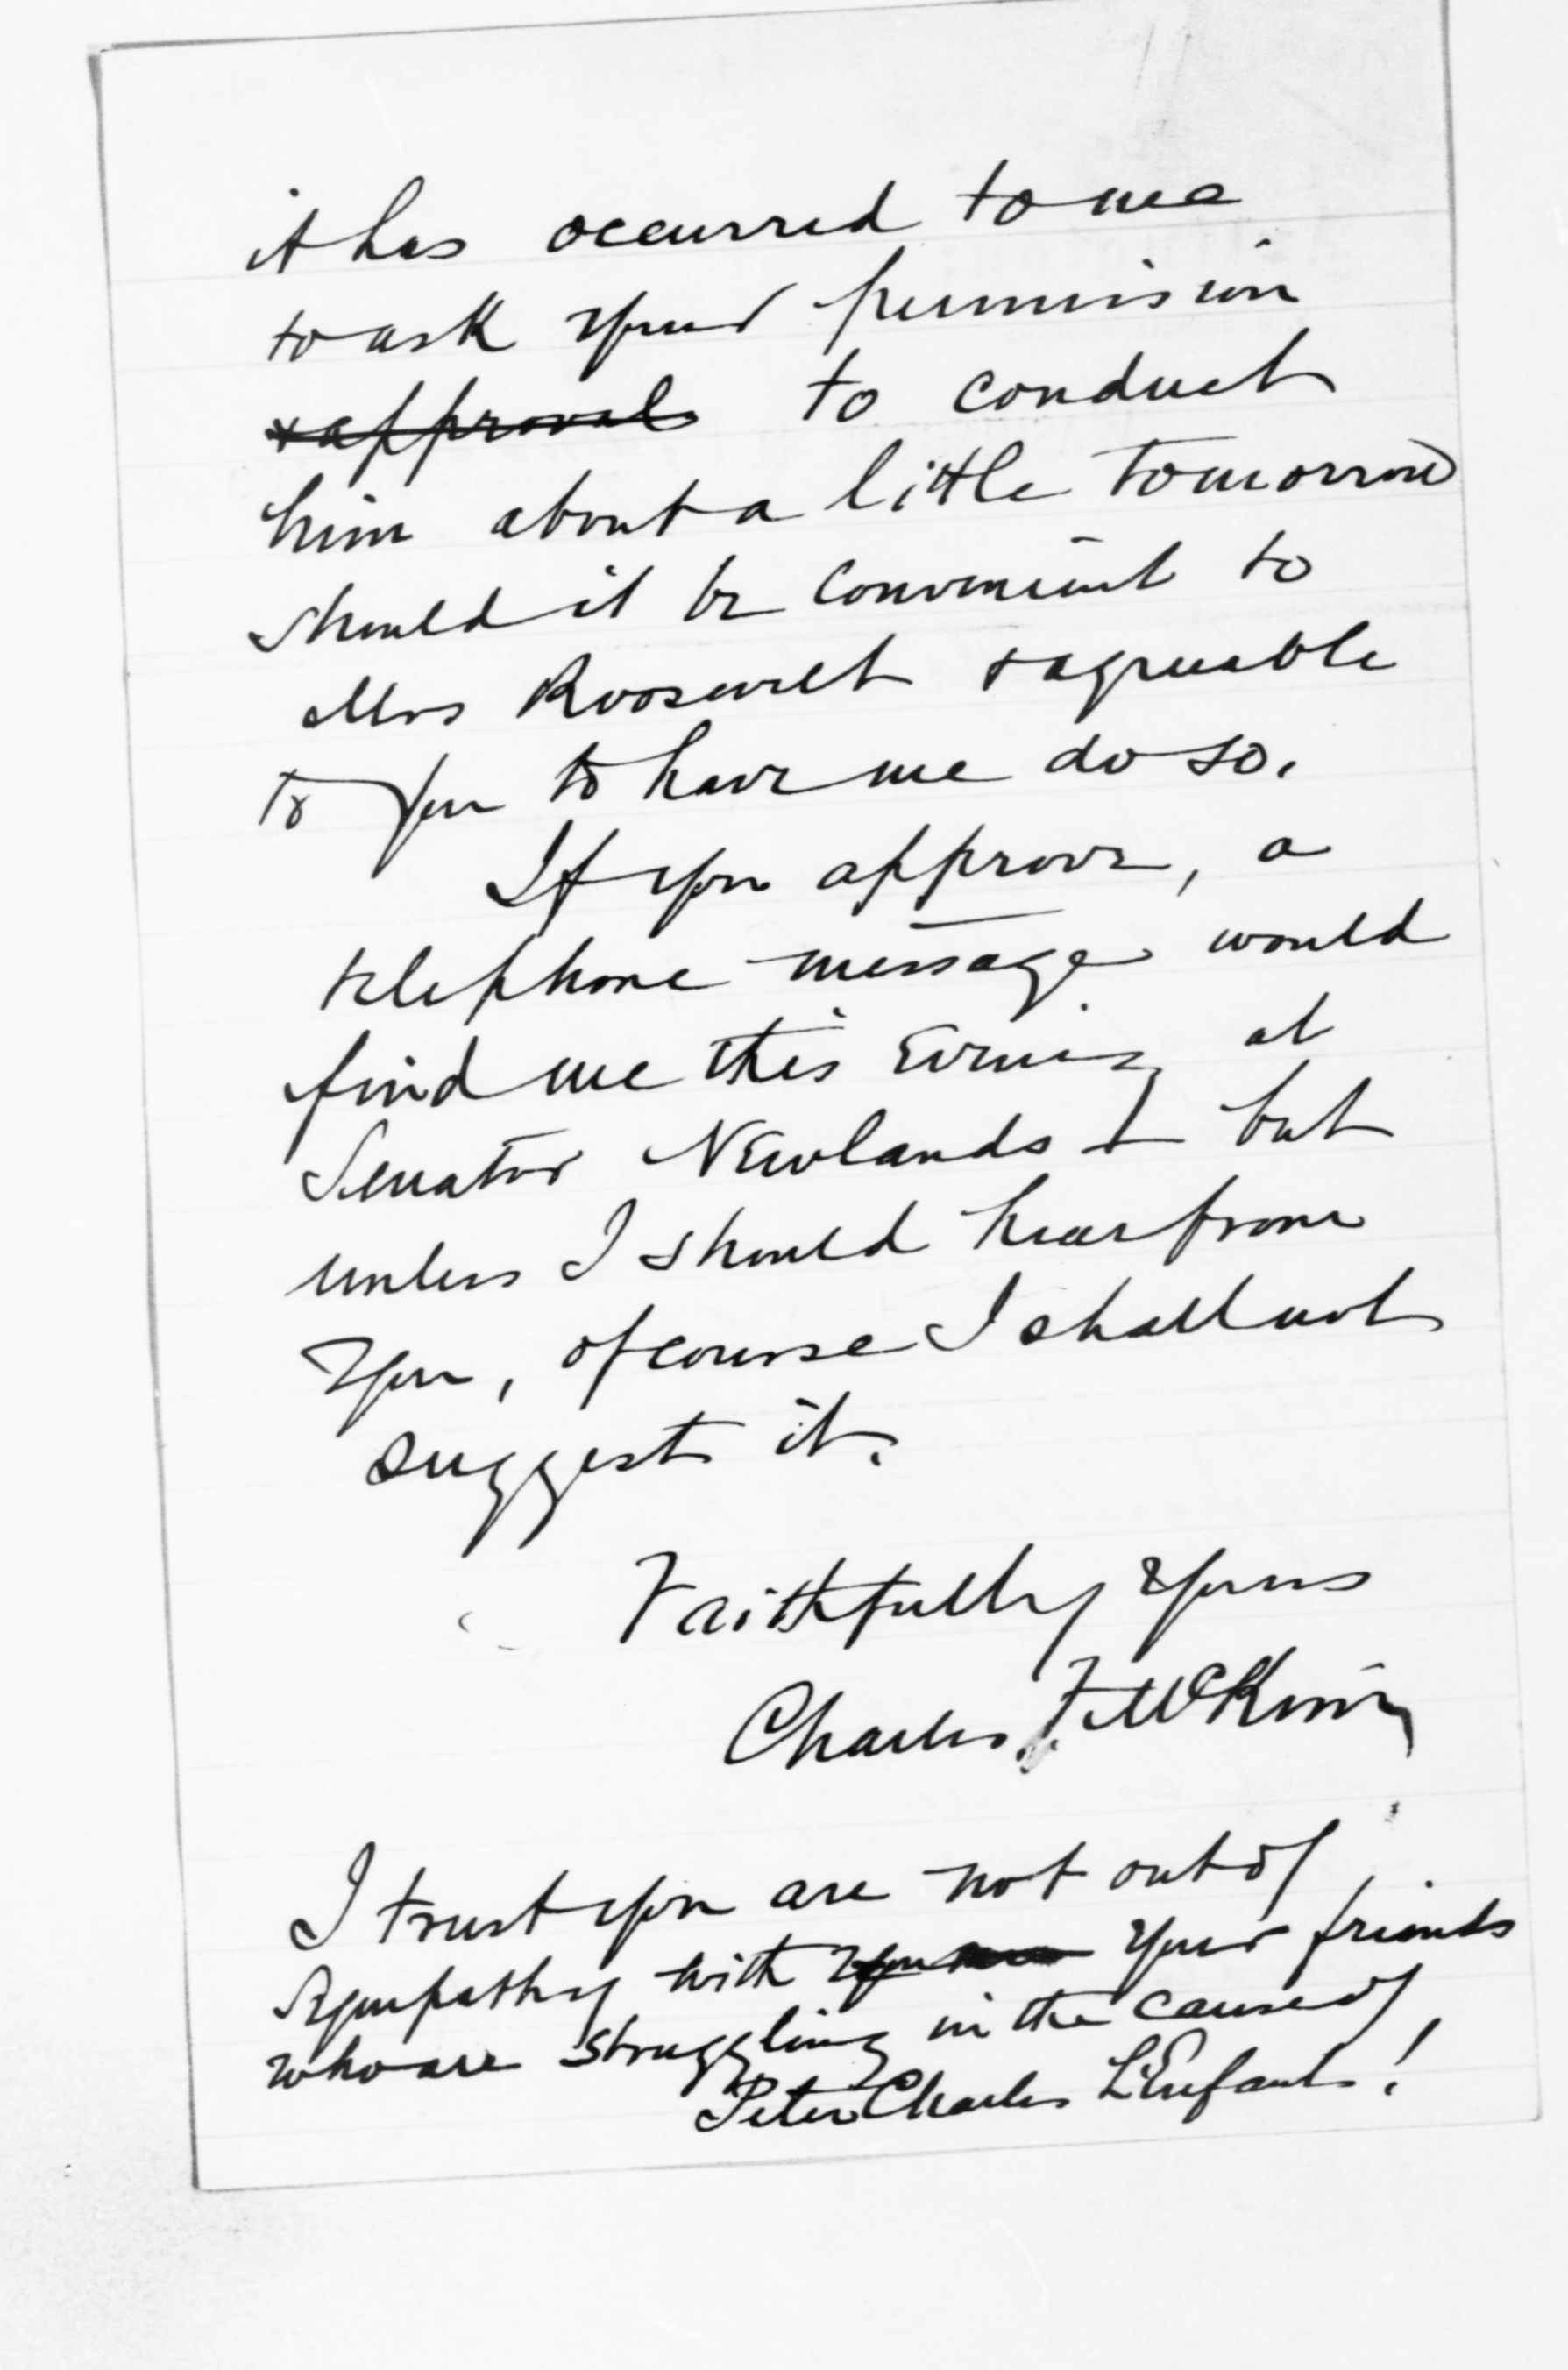 it has occurred to me
to ask your permission
& approval to conduct
him about a little tomorrow
should it be convenient to
Mrs Roosevelt & agreeable
to you to have me do so.
If you approve, a
telephone message would
find me this evening at
Senator Newlands — but
unless I should hear from
you, of course I shall not
suggest it.
Faithfully yours
Charles F. McKim
I trust you are not out of
sympathy with your friends
who are struggling in the cause of
Peter Charles L'Enfant!